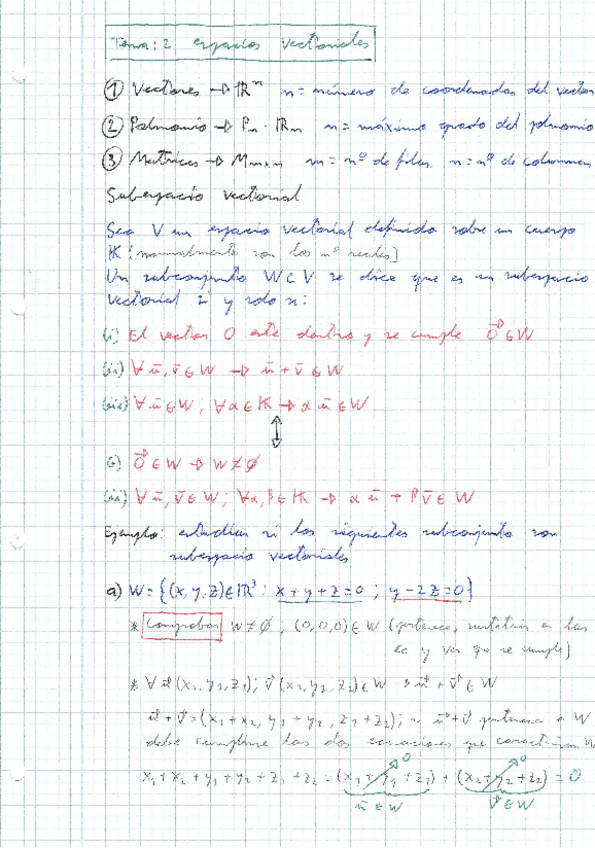 Tema: 2 espacios vectoriales
① Vectores → ℝⁿ n = número de coordenadas del vector
② Polinomio → Pₙ · ℝₙ n = máximo grado del polinomio
③ Matrices → Mₘₓₙ m = nº de filas n = nº de columnas
Subespacio vectorial
Sea V un espacio vectorial definido sobre un cuerpo
𝕂 (normalmente son los nº reales)
Un subconjunto W⊂V se dice que es un subespacio
vectorial si y solo si:
(i) El vector 0 este dentro y se cumple 0⃗ ∈ W
(ii) ∀ ū, v̄ ∈ W → ū + v̄ ∈ W
(iii) ∀ ū ∈ W ; ∀α ∈ 𝕂 → α ū ∈ W
↕
i) 0⃗ ∈ W → W ≠ ∅
(ii) ∀ ū, v̄ ∈ W ; ∀α, β ∈ 𝕂 → α ū + β v̄ ∈ W
Ejemplo: estudiar si los siguientes subconjunto son
subespacio vectoriales
a) W = {(x, y, z) ∈ ℝ³ : x + y + z = 0 ; y - 2z = 0}
* Comprobar W ≠ ∅ ; (0,0,0) ∈ W (pertenece, sustituir en las
ec y ver que se cumple)
* ∀ u⃗ (x₁, y₁, z₁) ; v⃗ (x₂, y₂, z₂) ∈ W → u⃗ + v⃗ ∈ W
u⃗ + v⃗ = (x₁ + x₂, y₁ + y₂, z₁ + z₂) ; si u⃗ + v⃗ pertenece a W
debe cumplirse las dos ecuaciones que caracterizan W
x₁ + x₂ + y₁ + y₂ + z₁ + z₂ = (x₁ + y₁ + z₁) + (x₂ + y₂ + z₂) = 0
0 0
ū ∈ W v⃗ ∈ W